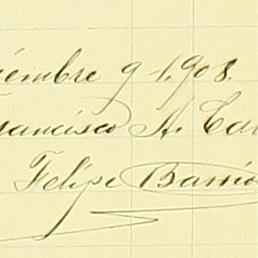 iémbre 9 1.908.
rancisco A. Ca
Felipe Barrio